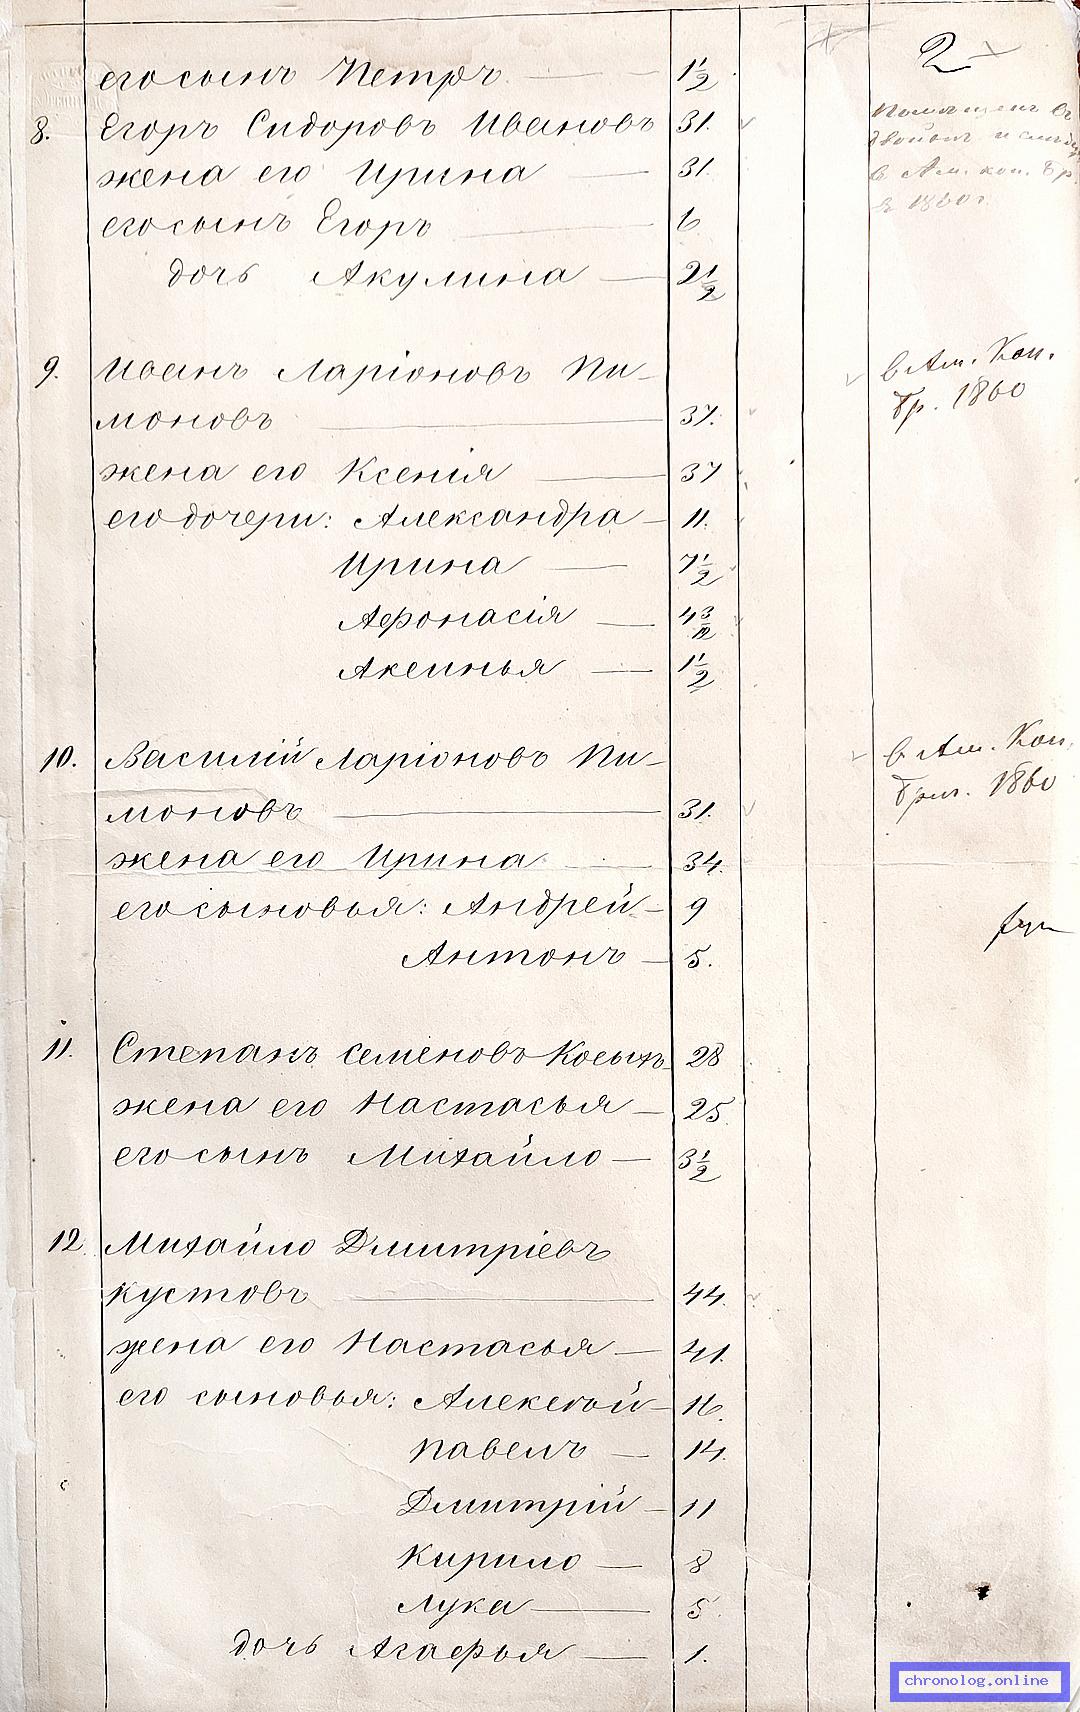 2
его сынъ Петръ 1 1/2
8. Егоръ Сидоровъ Ивановъ 31.
жена его Ирина 31
его сынъ Егоръ 6
дочь Акулина — 2 1/2
в Ам. кон.
в 1860 г.
9. Иванъ Ларіоновъ Пи-
моновъ 37.
жена его Ксенія 37
его дочери: Александра — 11.
Ирина — 7 1/2
Афонасія — 4 3/12
Аксинья — 1 1/2
в Ам. Кон.
бр. 1860
10. Василій Ларіоновъ Пи-
моновъ 31.
жена его Ирина 34.
его сыновья: Андрей — 9
Антонъ — 5.
в Ам. Кон.
бриг. 1860
11. Степанъ Семеновъ Косыхъ 28
жена его Настасья — 25
его сынъ Михайло — 3 1/2
12. Михайло Дмитріевъ
Кустовъ 44.
жена его Настасья — 41.
его сыновья: Алексѣй — 16.
Павелъ — 14.
Дмитрій — 11
Кирило — 8
Лука — 5.
дочь Агафья — 1.
chronolog.online